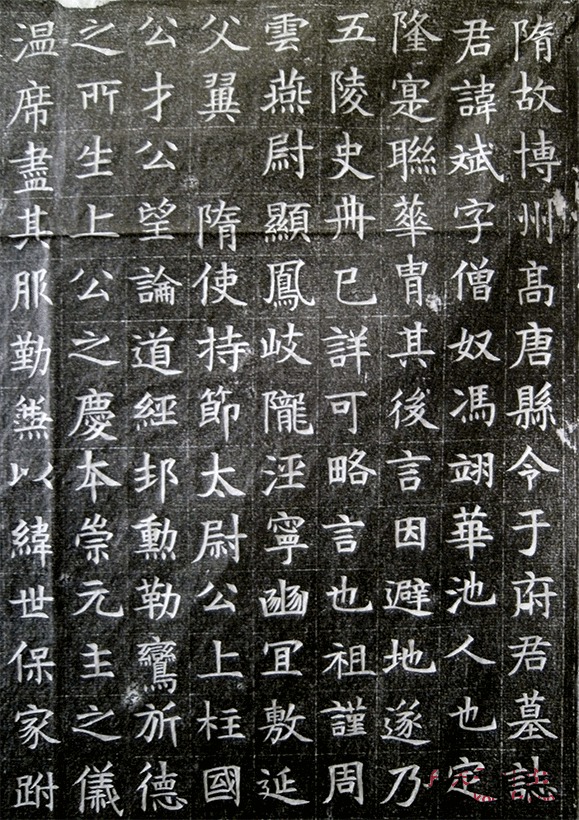 隋故博州高唐縣令于府君墓誌
君諱斌字僧奴馮翊華池人也定
隆寔聯華胄其後言因避地遂乃
五陵史冊已詳可略言也祖謹周
雲燕尉顯鳳岐隴涇寧豳宜敷延
父翼 隋使持節太尉公上柱國
公才公望論道經邦勳勒鸞旂德
之所生上公之慶本崇元主之儀
温席盡其服勤兼以緯世保家跗